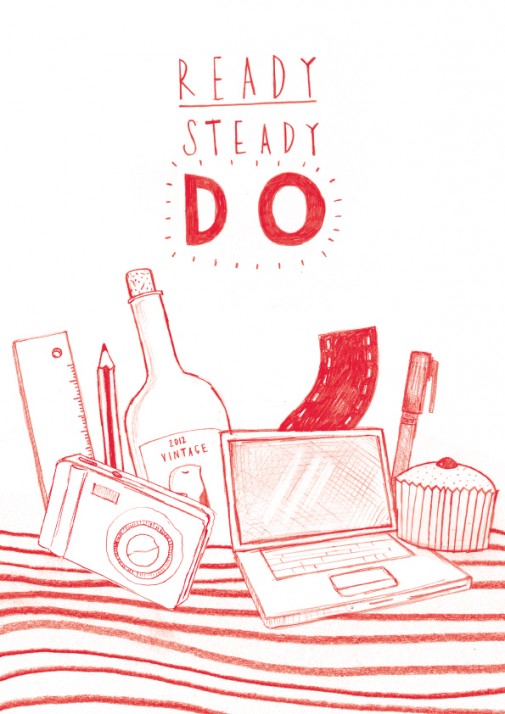 READY
STEADY
DO
2012
VINTAGE